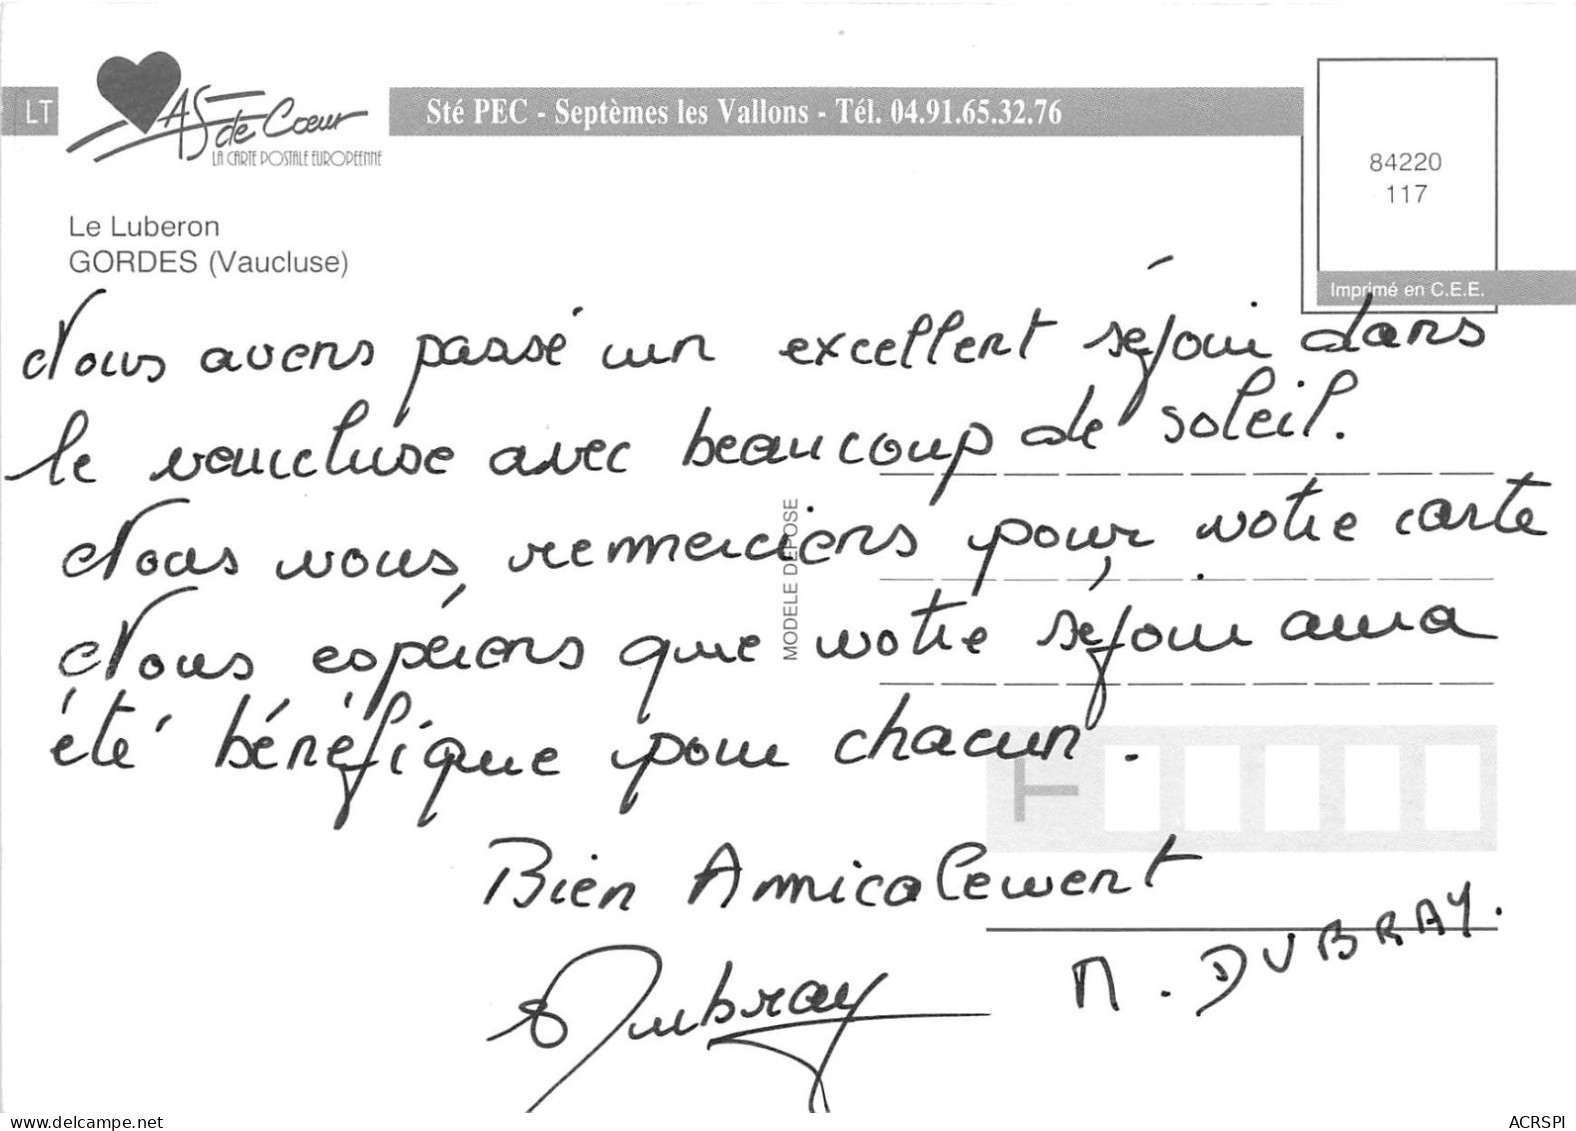 LT
AS de Cœur
LA CARTE POSTALE EUROPÉENNE
Sté PEC - Septèmes les Vallons - Tél. 04.91.65.32.76
84220
117
Imprimé en C.E.E.
Le Luberon
GORDES (Vaucluse)
Nous avons passé un excellent séjour dans
le vaucluse avec beaucoup de soleil.
Nous vous remercions pour votre carte
Nous espérons que votre séjour aura
été bénéfique pour chacun.
MODELE DEPOSE
Bien Amicalement
Dubray
M. DUBRAY.
delcampe.net
ACRSPI